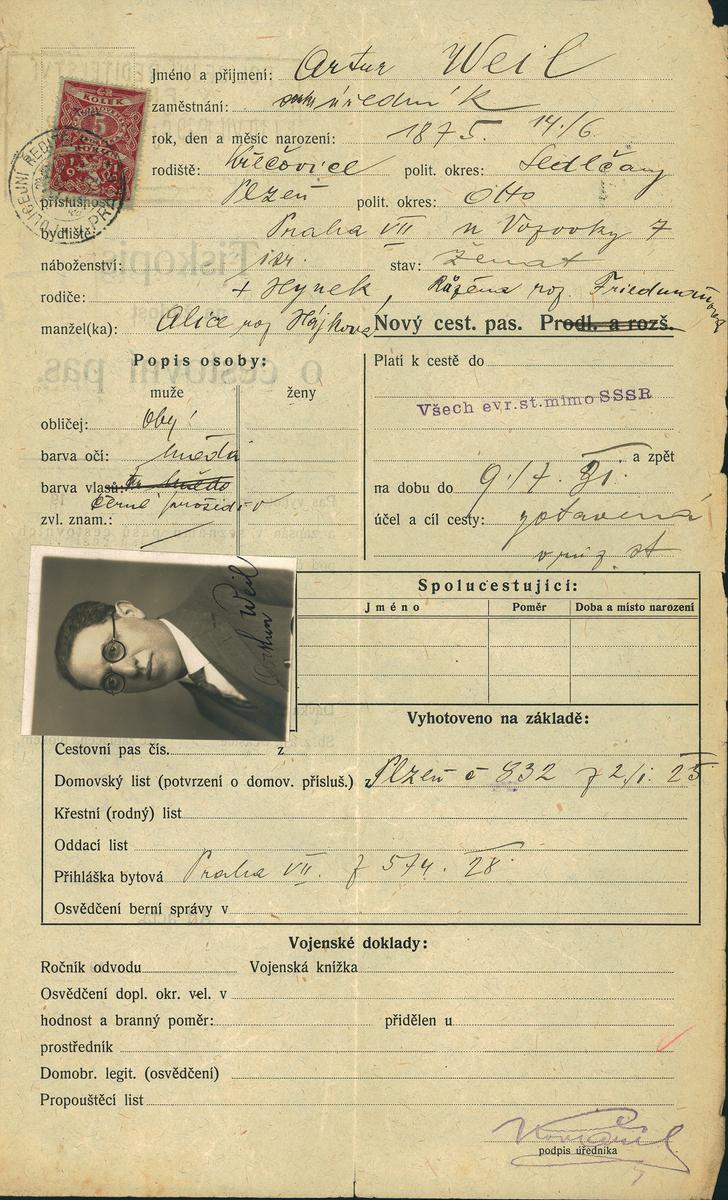 Jméno a příjmení: Artur Weil
zaměstnání: úředník
rok, den a měsíc narození: 1875. 14./6.
rodiště: Křečovice polit. okres: Sedlčany
příslušnost Plzeň polit. okres: Otto
bydliště: Praha VII n Vozovky 7
náboženství: izr. stav: ženat
rodiče: + Hynek, Růžena roz. Friedmannová
manžel(ka): Alice roz Hájková Nový cest. pas. Prodl. a rozš.
Popis osoby:
muže ženy
obličej: Obyč
barva očí: hnědá
barva vlasů: tm hnědo
černé prošediv
zvl. znam.:
Platí k cestě do
Všech evr. st. mimo SSSR
a zpět
na dobu do 9./7. 31.
účel a cíl cesty: zotavená
v st
KOLEK
5
POLICEJNÍ ŘEDITEL PRA
Artur Weil
Spolucestující:
Jméno Poměr Doba a místo narození
Vyhotoveno na základě:
Cestovní pas čís. z
Domovský list (potvrzení o domov. přísluš.) Plzeň č 832 z 2/I. 25
Křestní (rodný) list
Oddací list
Přihláška bytová Praha VII. z 5/4. 28
Osvědčení berní správy v
Vojenské doklady:
Ročník odvodu Vojenská knížka
Osvědčení dopl. okr. vel. v
hodnost a branný poměr: přidělen u
prostředník
Domobr. legit. (osvědčení)
Propouštěcí list
podpis úředníka